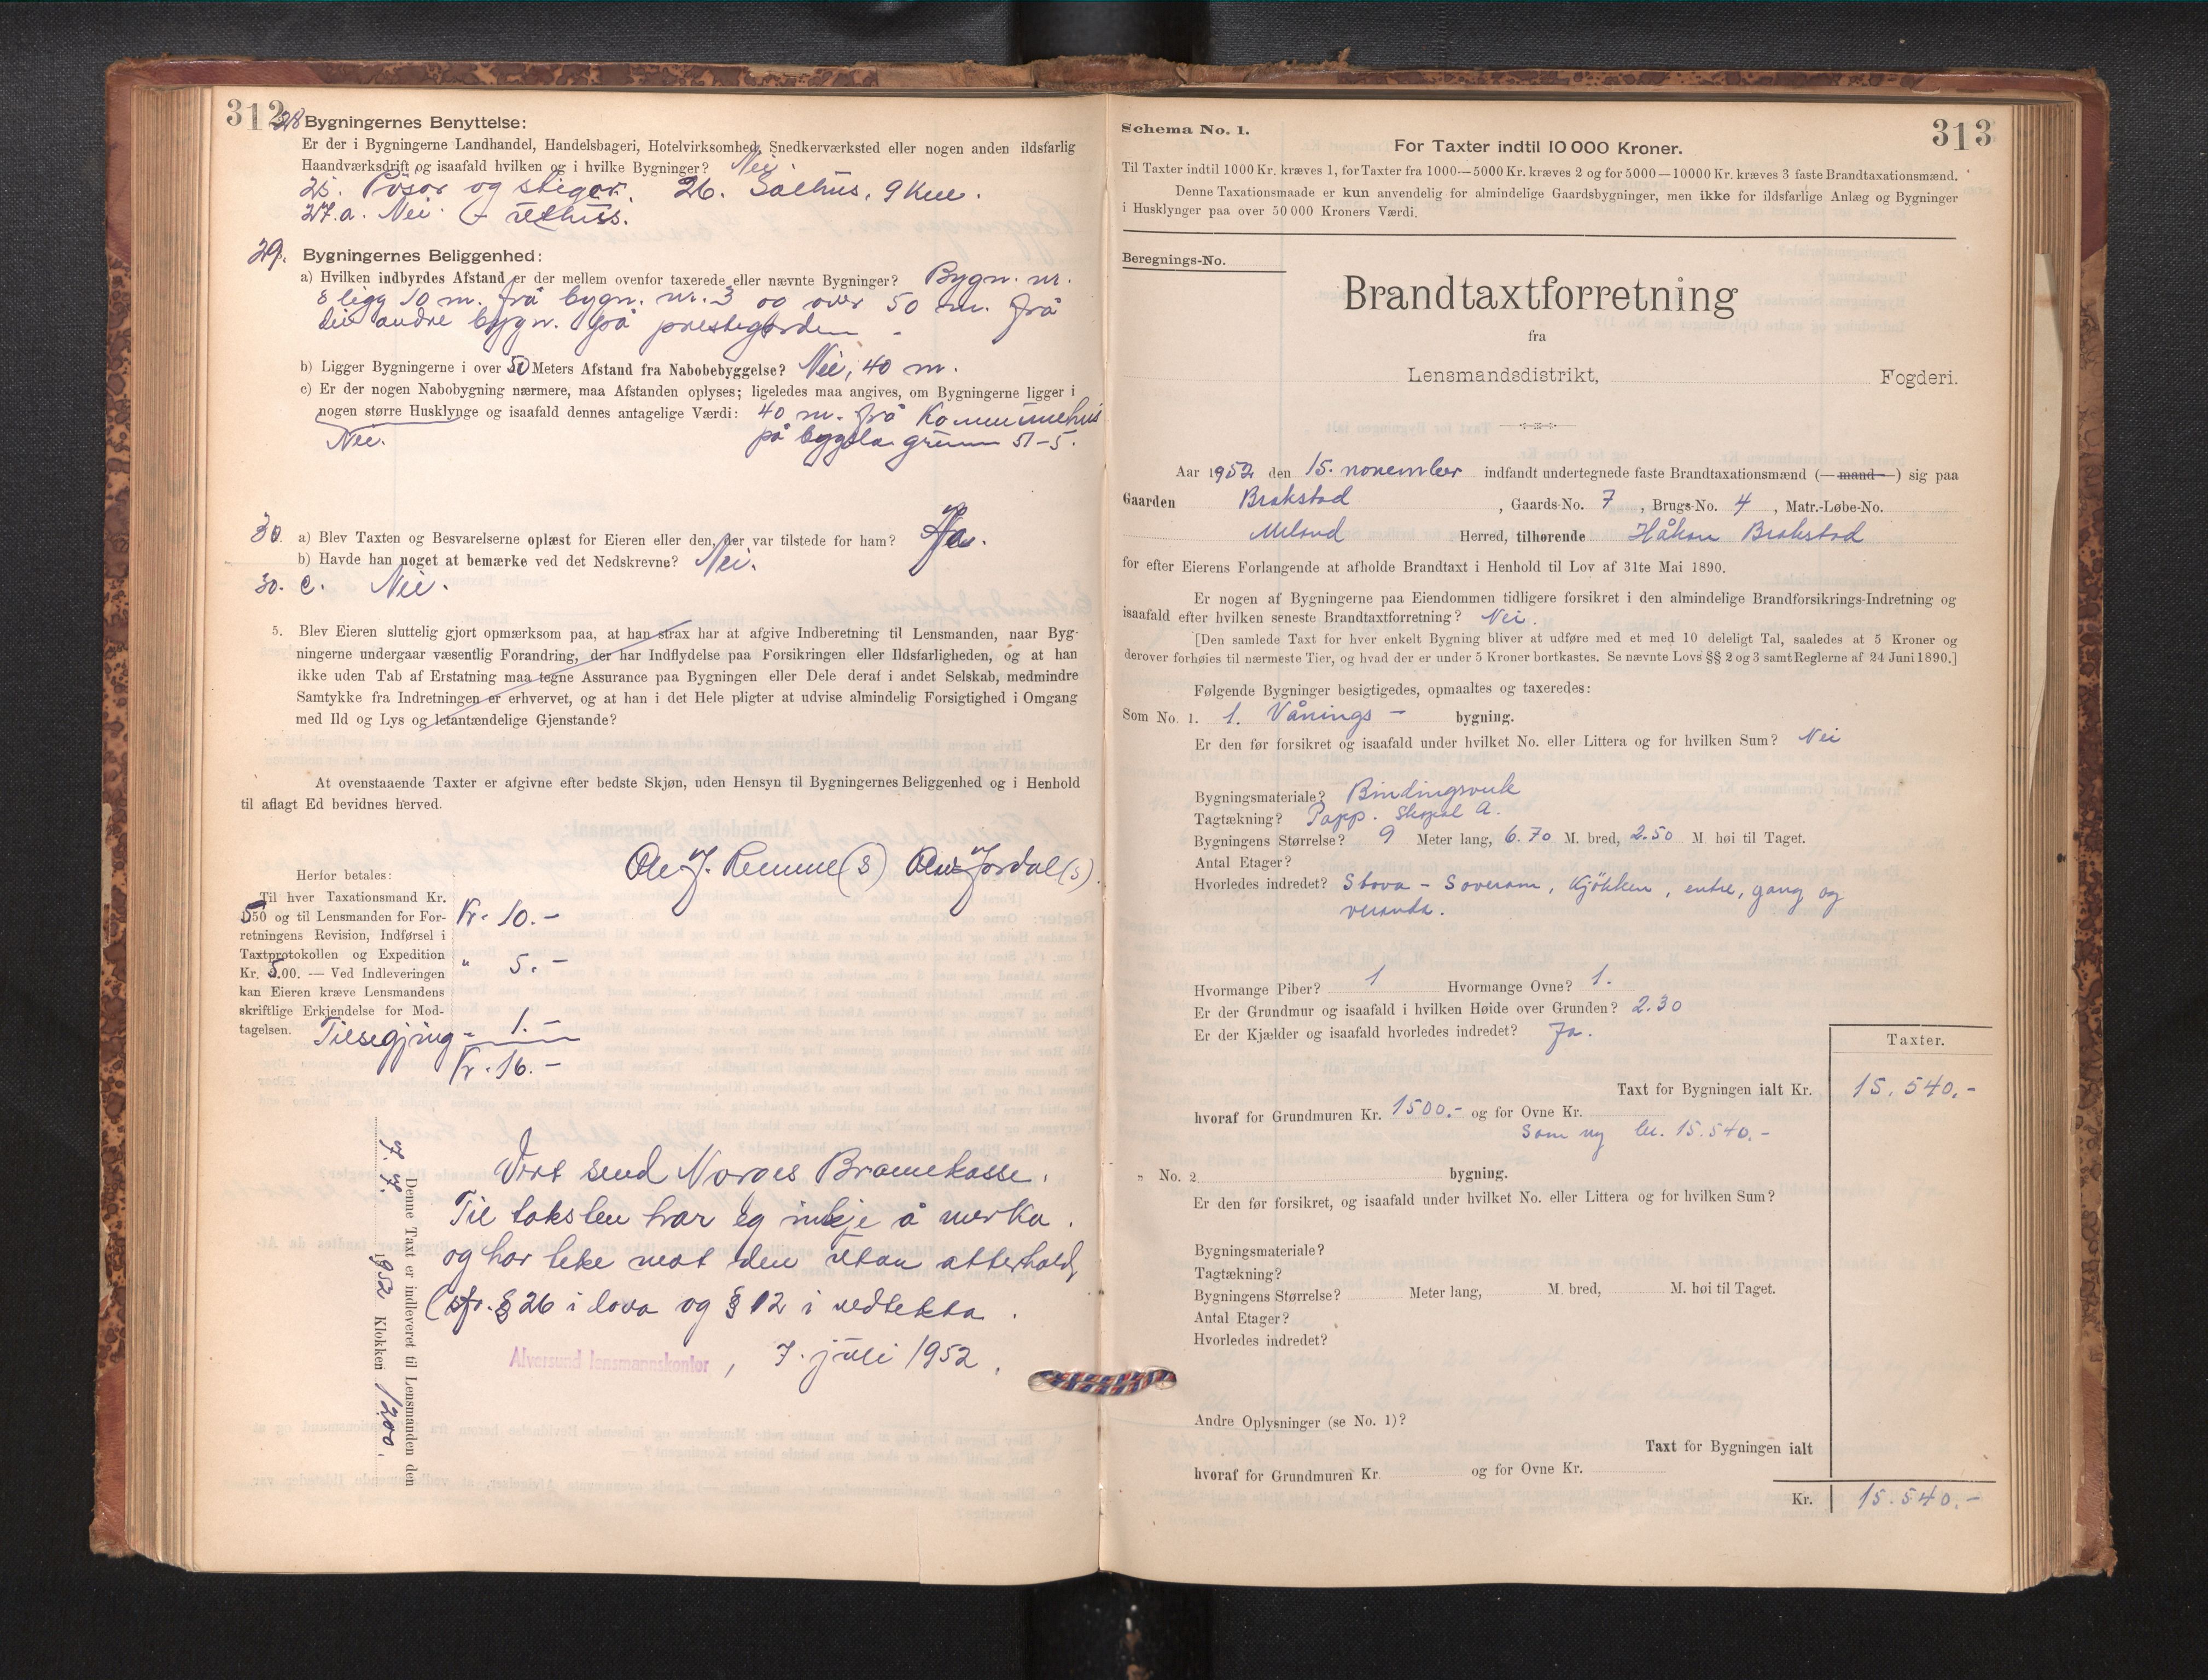 312
28 Bygningernes Benyttelse:
Er der i Bygningerne Landhandel, Handelsbageri, Hotelvirksomhed, Snedkerværksted eller nogen anden ildsfarlig
Haandværksdrift og isaafald hvilken og i hvilke Bygninger? Nei.
25. Pøsar og stigar. 26. Salhus, 9 Km.
27.a. Nei. uthus.
29. Bygningernes Beliggenhed:
a) Hvilken indbyrdes Afstand er der mellem ovenfor taxerede eller nævnte Bygninger? Bygn. nr.
8 ligg 10 m. frå bygn. nr. 3 og over 50 m. frå
dei andre bygn. på prestegarden -
b) Ligger Bygningerne i over 50 Meters Afstand fra Nabobebyggelse? Nei, 40 m.
c) Er der nogen Nabobygning nærmere, maa Afstanden oplyses; ligeledes maa angives, om Bygningerne ligger i
nogen større Husklynge og isaafald dennes antagelige Værdi: 40 m. frå Kommunehus
Nei. på bygsla grunn 51-5.
30. a) Blev Taxten og Besvarelserne oplæst for Eieren eller den, der var tilstede for ham? Ja.
b) Havde han noget at bemærke ved det Nedskrevne? Nei.
30. c. Nei.
5. Blev Eieren sluttelig gjort opmærksom paa, at han strax har at afgive Indberetning til Lensmanden, naar Byg-
ningerne undergaar væsentlig Forandring, der har Indflydelse paa Forsikringen eller Ildsfarligheden, og at han
ikke uden Tab af Erstatning maa tegne Assurance paa Bygningen eller Dele deraf i andet Selskab, medmindre
Samtykke fra Indretningen er erhvervet, og at han i det Hele pligter at udvise almindelig Forsigtighed i Omgang
med Ild og Lys og letantændelige Gjenstande?
At ovenstaaende Taxter er afgivne efter bedste Skjøn, uden Hensyn til Bygningernes Beliggenhed og i Henhold
til aflagt Ed bevidnes herved.
Ole J. Remme (s) Olav Jordal (s).
Herfor betales:
Til hver Taxationsmand Kr.
550 og til Lensmanden for For-
retningens Revision, Indførsel i
Taxtprotokollen og Expedition
Kr. 5.00. — Ved Indleveringen
kan Eieren kræve Lensmandens
skriftlige Erkjendelse for Mod-
tagelsen.
Kr. 10.-
" 5.-
Tilsegjing - 1.-
Kr. 16.-
Vert send Norges Brannekasse.
Til taksten har eg inkje å merka.
og har teke mot den utan atterhald,
(sfr. § 26 i lova og § 12 i vedtekta.
Alversund lensmannskontor, 7. juli 1952.
Denne Taxt er indleveret til Lensmanden den
7. 7. 1952 Klokken 1200.
313
Schema No. 1.
For Taxter indtil 10 000 Kroner.
Til Taxter indtil 1000 Kr. kræves 1, for Taxter fra 1000—5000 Kr. kræves 2 og for 5000—10000 Kr. kræves 3 faste Brandtaxationsmænd.
Denne Taxationsmaade er kun anvendelig for almindelige Gaardsbygninger, men ikke for ildsfarlige Anlæg og Bygninger
i Husklynger paa over 50 000 Kroners Værdi.
Beregnings-No.
Brandtaxtforretning
fra
Lensmandsdistrikt, Fogderi.
Aar 1952 den 15. november indfandt undertegnede faste Brandtaxationsmænd (—mand—) sig paa
Gaarden Brakstad, Gaards-No. 7, Brugs-No. 4, Matr.-Løbe-No.
Meland Herred, tilhørende Håkon Brakstad
for efter Eierens Forlangende at afholde Brandtaxt i Henhold til Lov af 31te Mai 1890.
Er nogen af Bygningerne paa Eiendommen tidligere forsikret i den almindelige Brandforsikrings-Indretning og
isaafald efter hvilken seneste Brandtaxtforretning? Nei.
[Den samlede Taxt for hver enkelt Bygning bliver at udføre med et med 10 deleligt Tal, saaledes at 5 Kroner og
derover forhøies til nærmeste Tier, og hvad der er under 5 Kroner bortkastes. Se nævnte Lovs §§ 2 og 3 samt Reglerne af 24 Juni 1890.]
Følgende Bygninger besigtigedes, opmaaltes og taxeredes:
Som No. 1. 1. Vånings - bygning.
Er den før forsikret og isaafald under hvilket No. eller Littera og for hvilken Sum? Nei
Bygningsmateriale? Bindingsverk
Tagtækning? Papp. Skapal A.
Bygningens Størrelse? 9 Meter lang, 6.70 M. bred, 2.50 M høi til Taget.
Antal Etager?
Hvorledes indredet? Stova - Soverom, Kjökken, entre, gang og
veranda.
Hvormange Piber? 1 Hvormange Ovne? 1.
Er der Grundmur og isaafald i hvilken Høide over Grunden? 2.30
Er der Kjælder og isaafald hvorledes indredet? Ja.
Taxter.
Taxt for Bygningen ialt Kr. 15.540.-
hvoraf for Grundmuren Kr. 1500.- og for Ovne Kr.
Som ny kr. 15.540.-
" No. 2 bygning.
Er den før forsikret, og isaafald under hvilket No. eller Littera og for hvilken Sum?
Bygningsmateriale?
Tagtækning?
Bygningens Størrelse? Meter lang, M. bred, M. høi til Taget.
Antal Etager?
Hvorledes indredet?
Andre Oplysninger (se No. 1)?
Taxt for Bygningen ialt
hvoraf for Grundmuren Kr. og for Ovne Kr.
Kr. 15.540.-